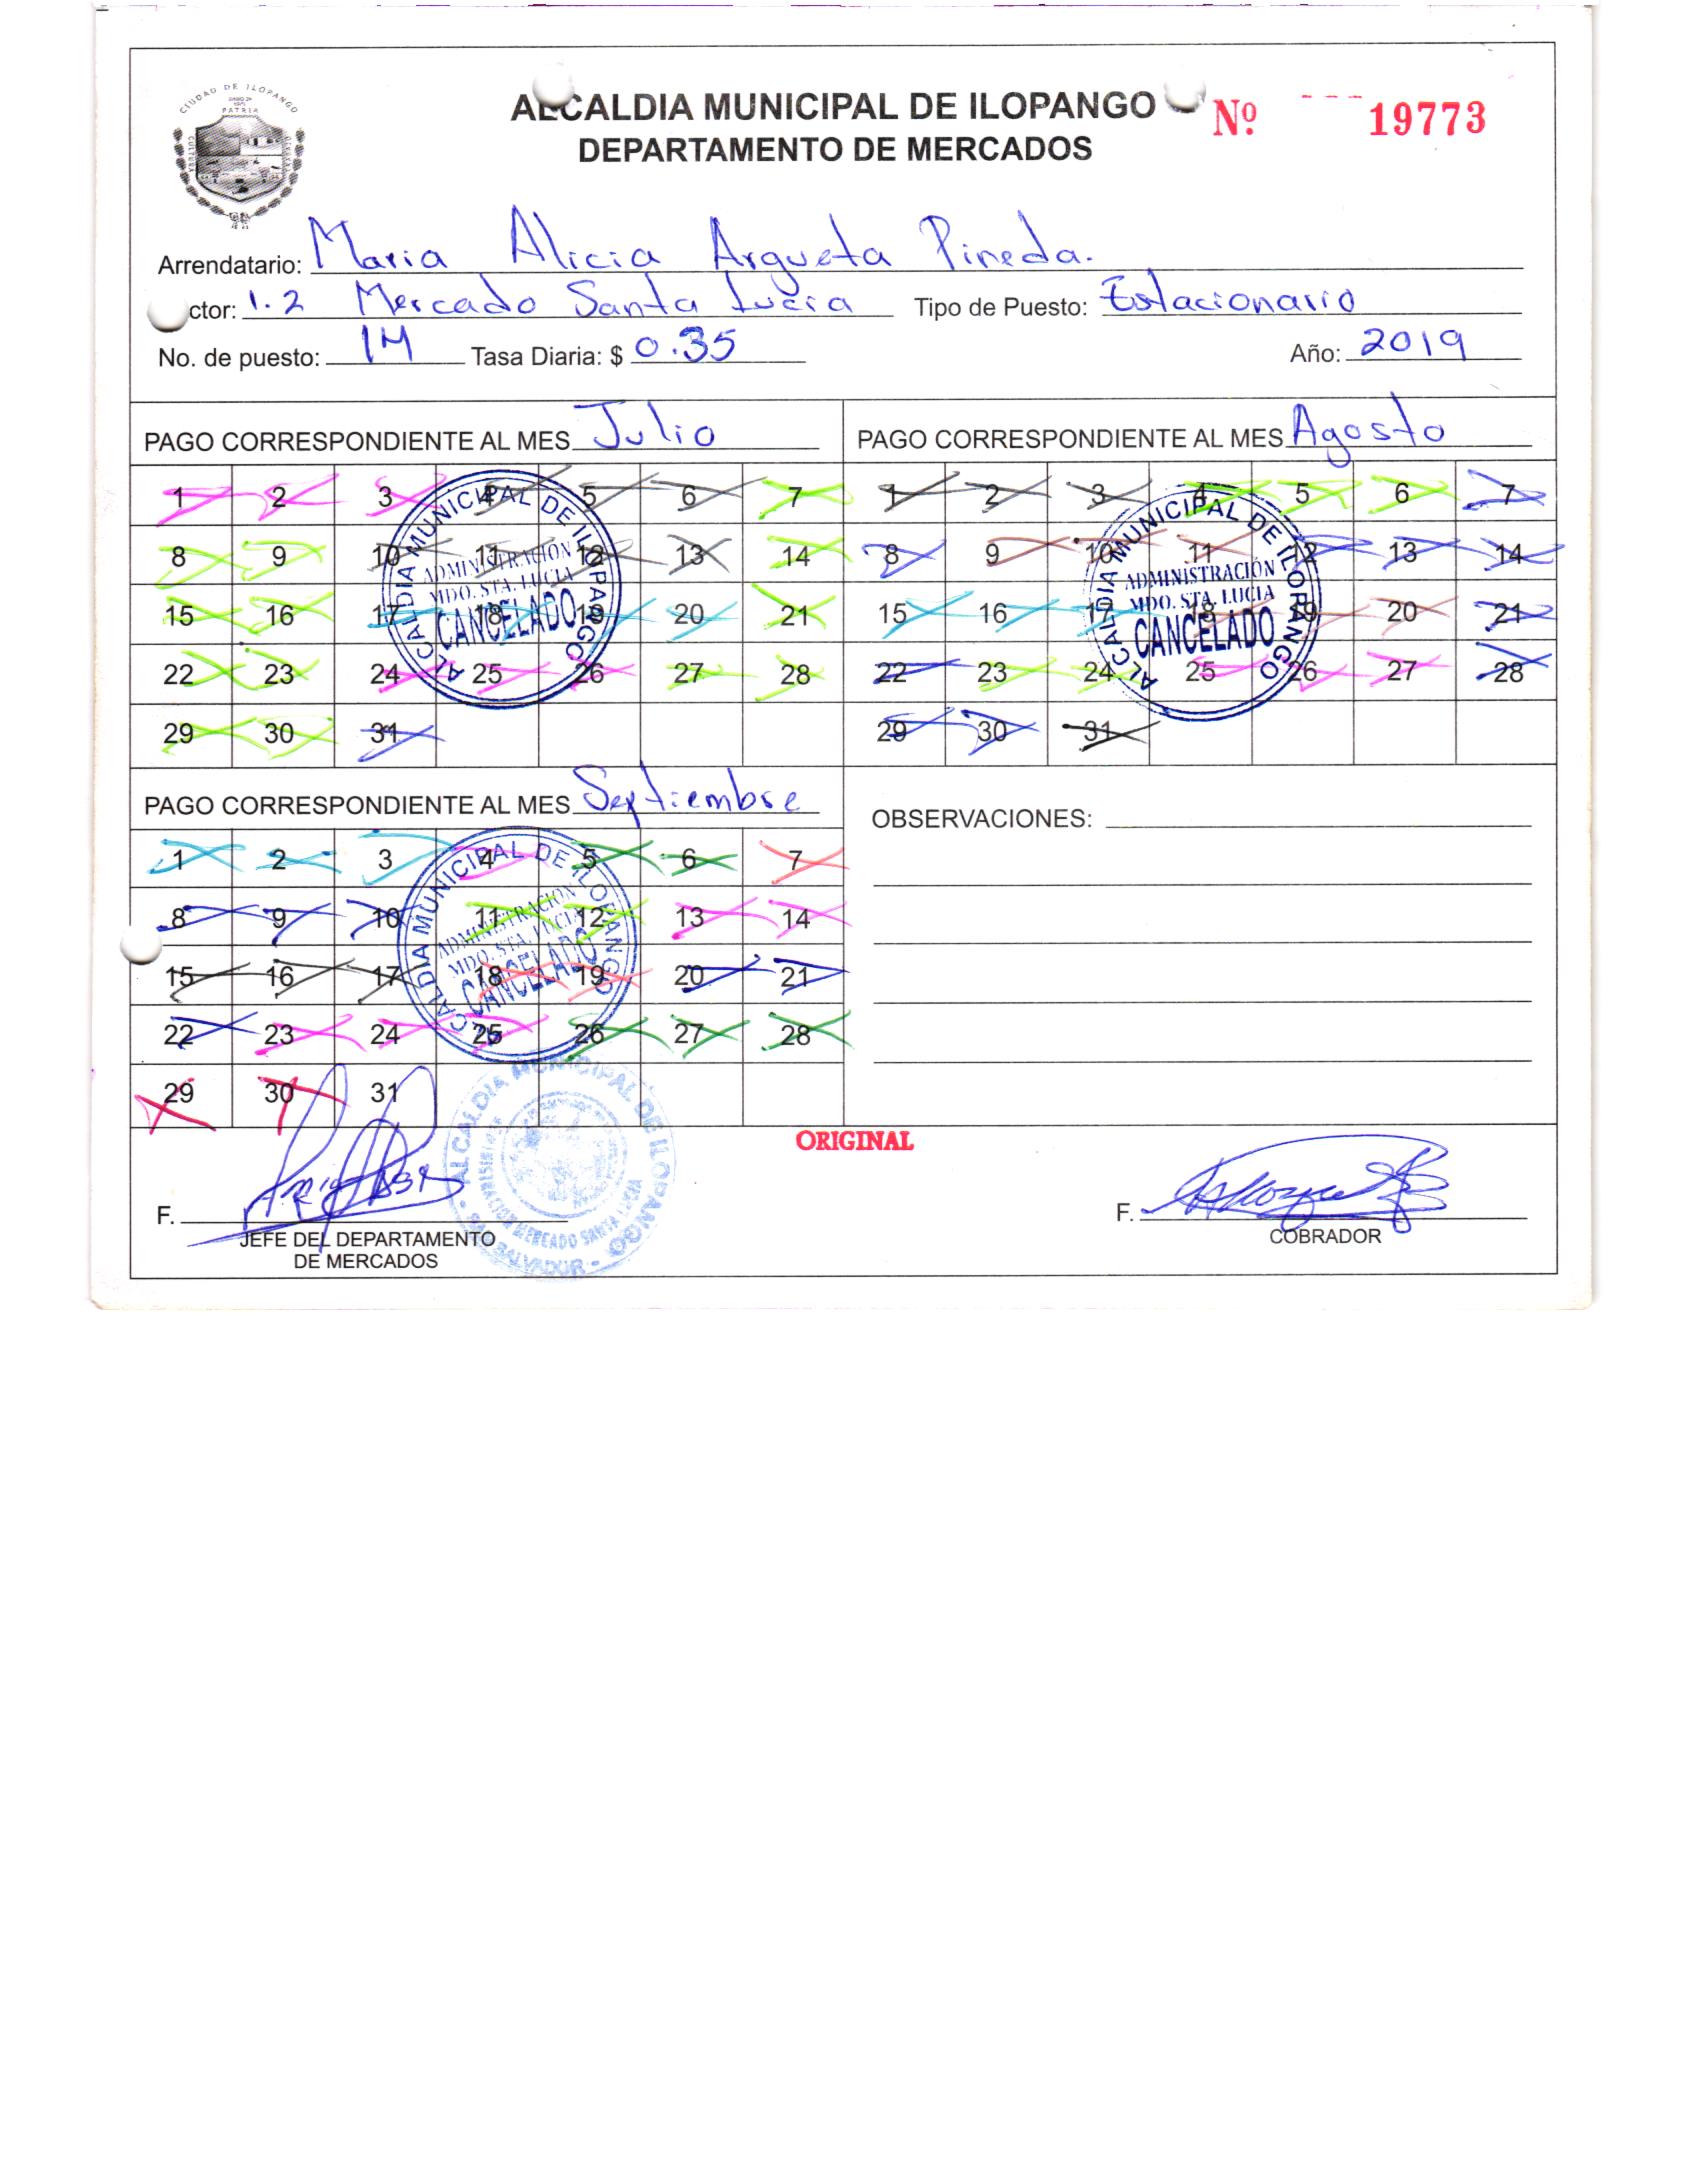 CIUDAD DE ILOPANGO
PATRIA
CULTURA
ALCALDIA MUNICIPAL DE ILOPANGO
DEPARTAMENTO DE MERCADOS
Nº 19773
Arrendatario: Maria Alicia Argueta Pineda.
ctor: 1.2 Mercado Santa Lucia Tipo de Puesto: Estacionario
No. de puesto: Tasa Diaria: $ 0.35 Año: 2019
PAGO CORRESPONDIENTE AL MES Julio
1 2 3 4 5 6 7
8 9 10 11 12 13 14
15 16 17 18 19 20 21
22 23 24 25 26 27 28
29 30 31
ALCALDIA MUNICIPAL DE ILOPANGO
ADMINISTRACIÓN
MDO. STA. LUCIA
CANCELADO
PAGO CORRESPONDIENTE AL MES Agosto
1 2 3 4 5 6 7
8 9 10 11 12 13 14
15 16 17 18 19 20 21
22 23 24 25 26 27 28
29 30 31
ALCALDIA MUNICIPAL DE ILOPANGO
ADMINISTRACIÓN
MDO. STA. LUCIA
CANCELADO
PAGO CORRESPONDIENTE AL MES Septiembre
1 2 3 4 5 6 7
8 9 10 11 12 13 14
15 16 17 18 19 20 21
22 23 24 25 26 27 28
29 30 31
ALCALDIA MUNICIPAL DE ILOPANGO
ADMINISTRACIÓN
MDO. STA. LUCIA
CANCELADO
OBSERVACIONES:
ORIGINAL
F.
JEFE DEL DEPARTAMENTO
DE MERCADOS
ALCALDIA MUNICIPAL DE ILOPANGO
ADMINISTRACION MERCADO SANTA LUCIA
SAN SALVADOR
F.
COBRADOR